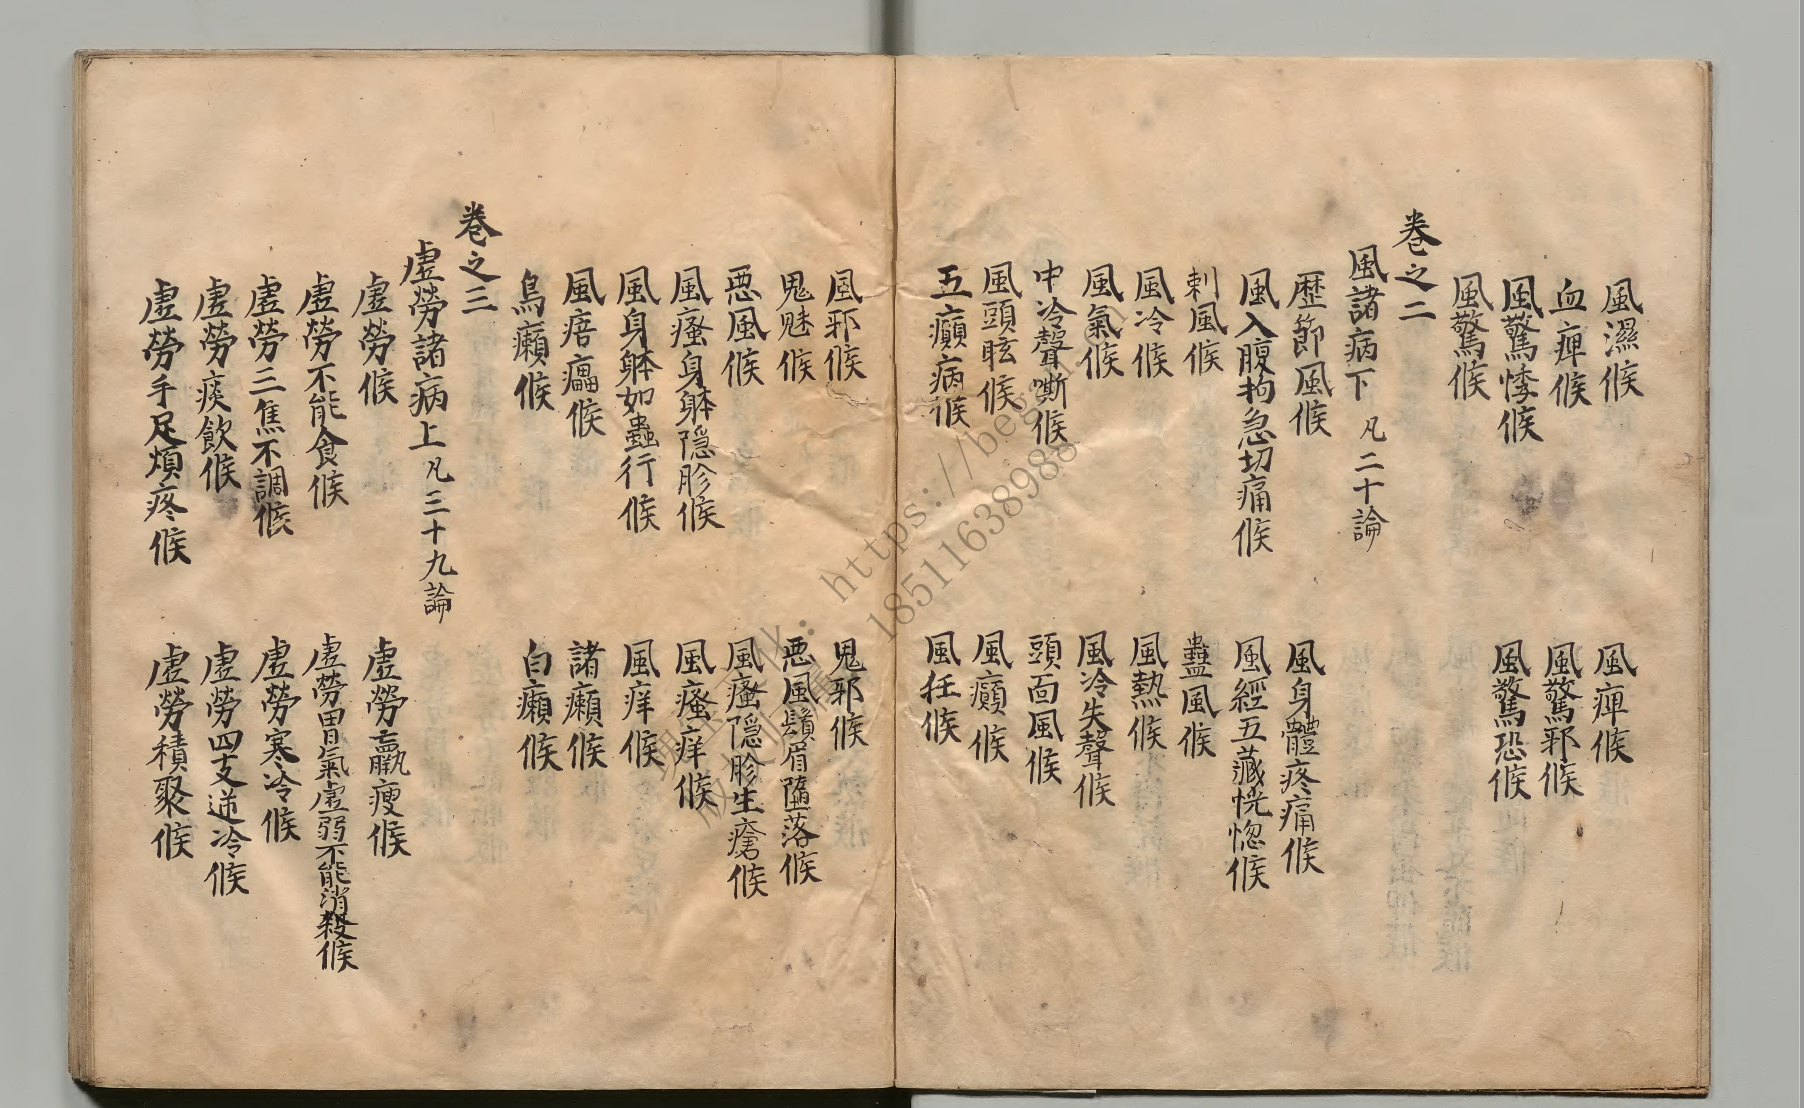 風濕候　風痺候
血痺候　風驚邪候
風驚悸候　風驚恐候
風驚候
卷之二
風諸病下　凡二十論
歷節風候　風身體疼痛候
風入腹拘急切痛候　風經五藏恍惚候
刺風候　蠱風候
風冷候　風熱候
風氣候　風冷失聲候
中冷聲嘶候　頭面風候
風頭眩候　風癲候
五癲病候　風狂候
風邪候　鬼邪候
鬼魅候　惡風鬚眉墮落候
惡風候　風瘙隱胗生瘡候
風瘙身躰隱胗候　風瘙痒候
風身躰如蟲行候　風痒候
風痦㿔候　諸癩候
烏癩候　白癩候
卷之三
虛勞諸病上　凡三十九論
虛勞候　虛勞羸瘦候
虛勞不能食候　虛勞胃氣虛弱不能消穀候
虛勞三焦不調候　虛勞寒冷候
虛勞痰飲候　虛勞四支逆冷候
虛勞手足煩疼候　虛勞積聚候
https://beg
18511638988